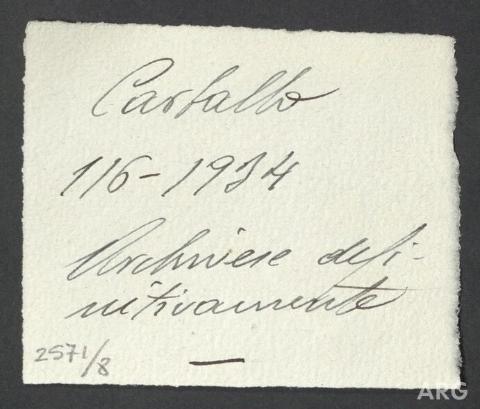 Carballo
116-1934
Archivese defi-
nitivamente
2571/8
ARG